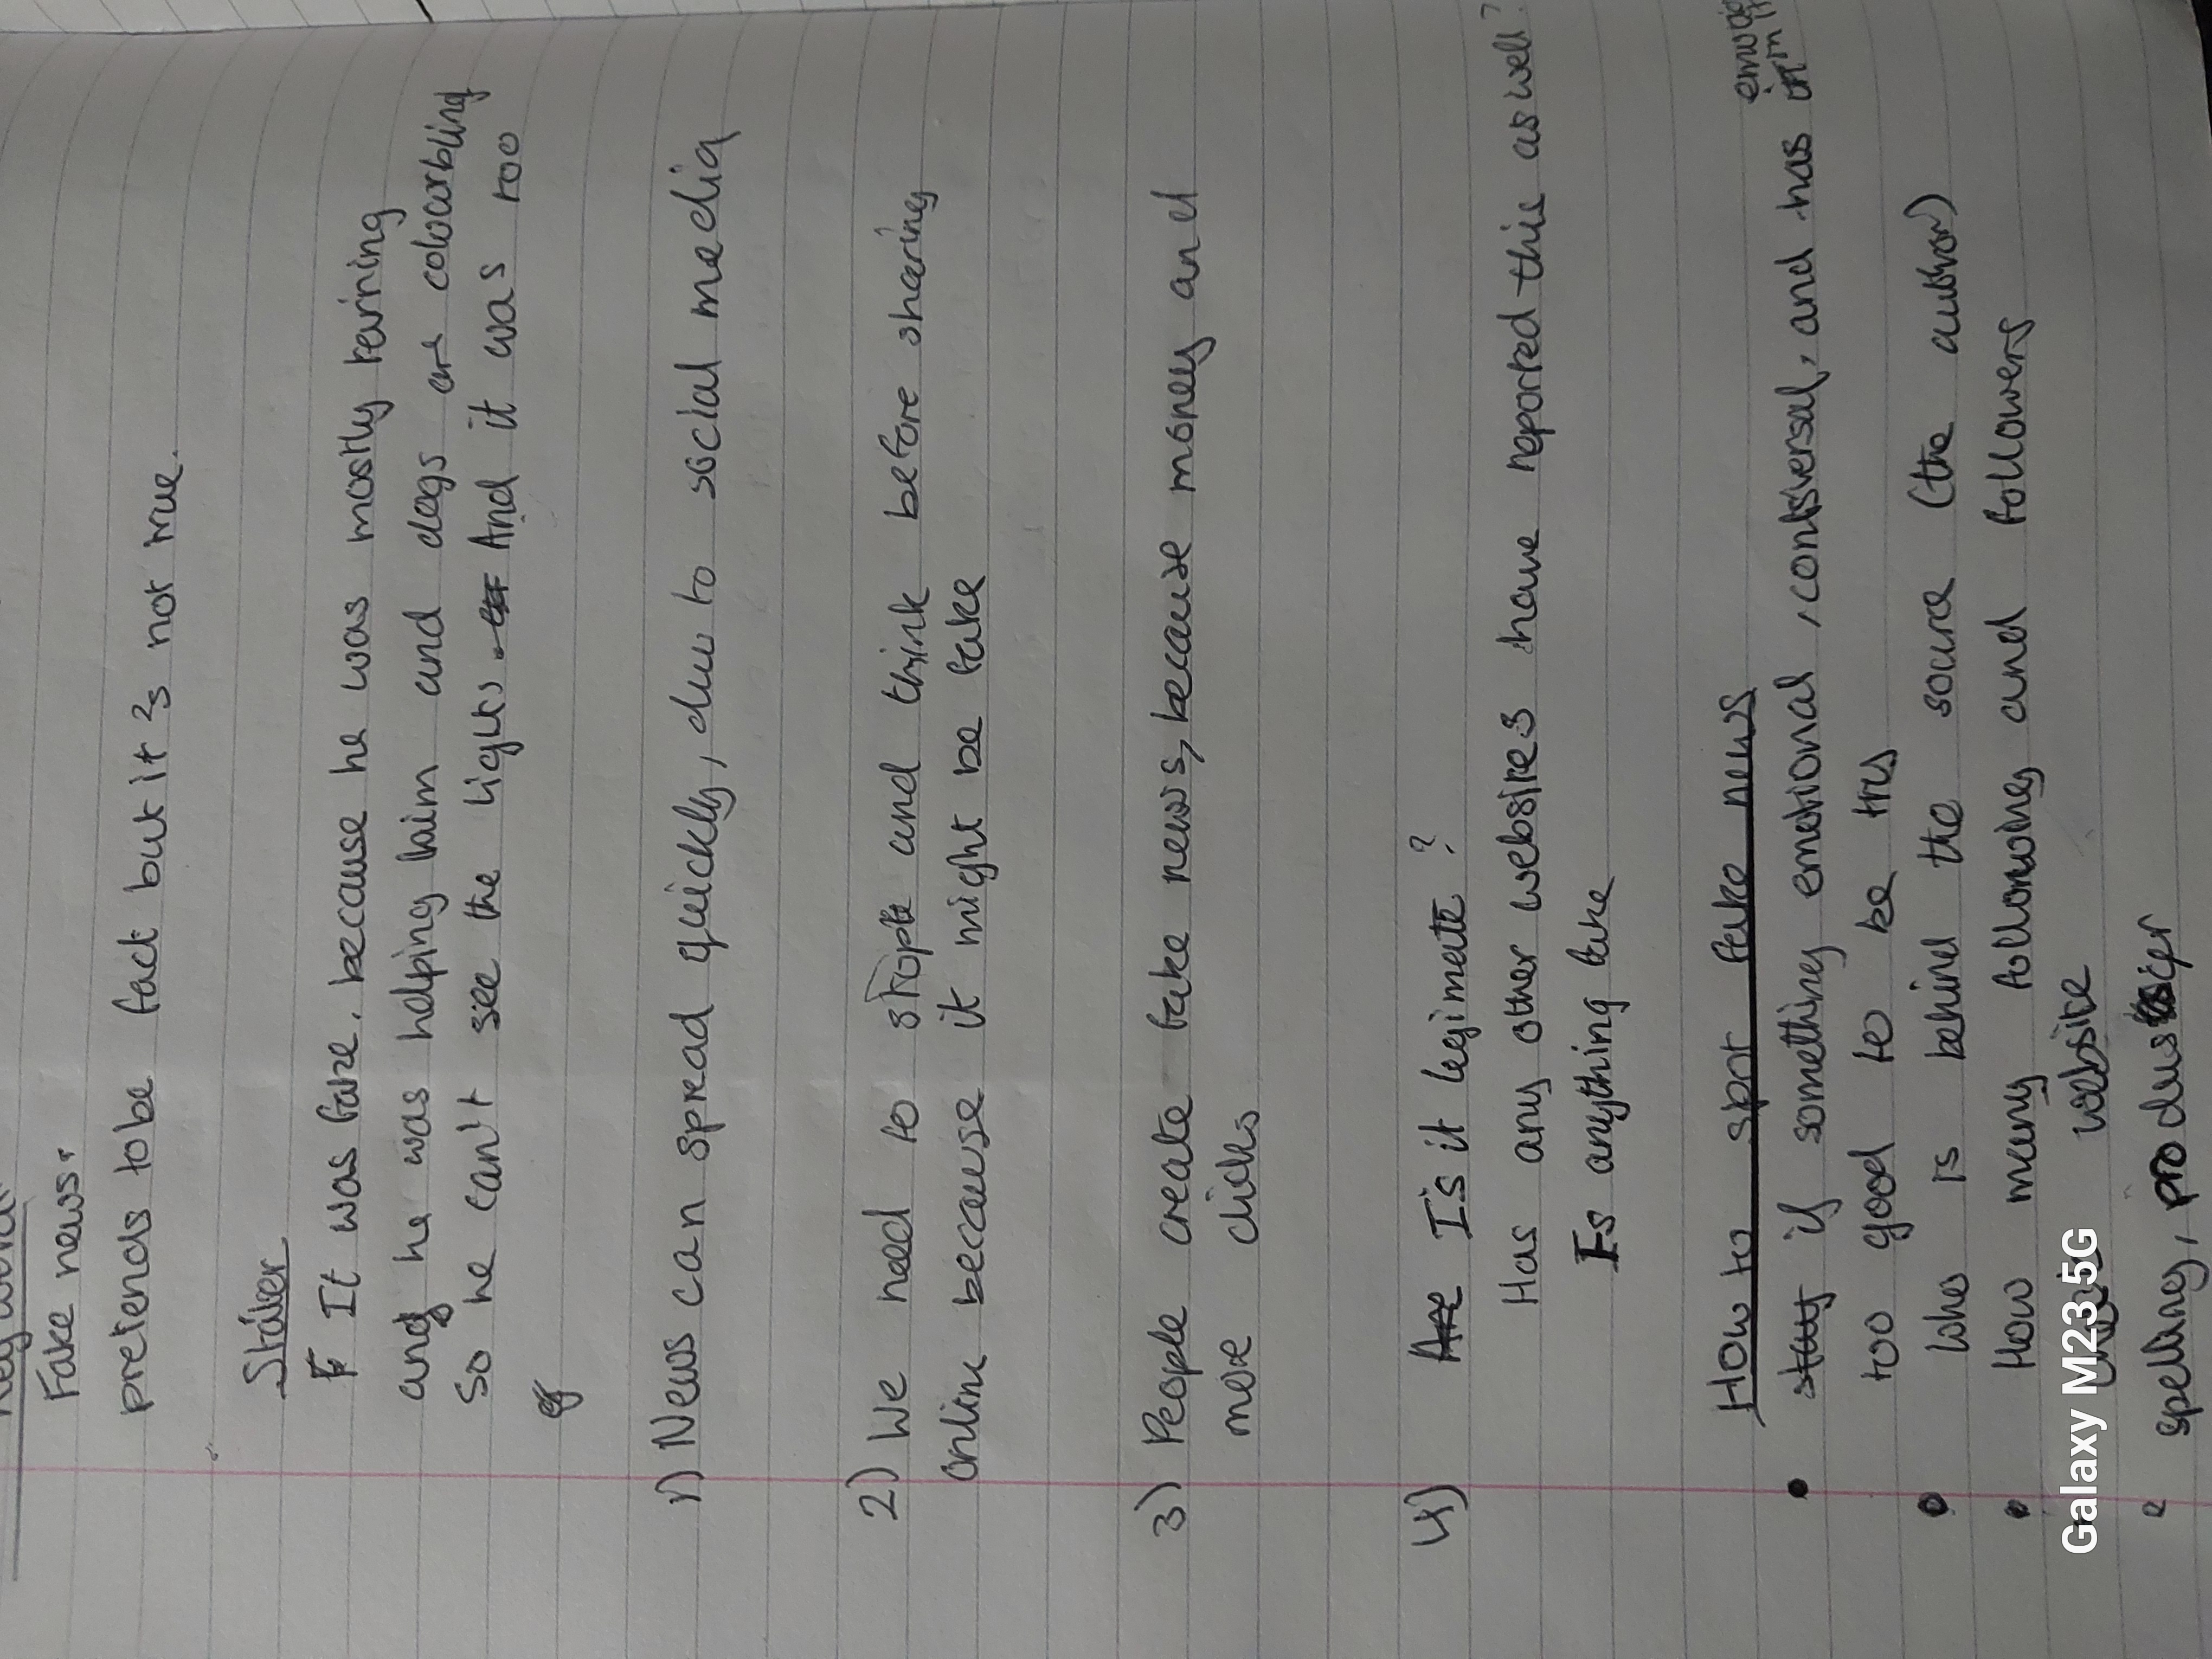 Fake news.
pretends to be fact but it's not true.
Starter
It was fake. beccause he was mostly reining
and he was helping him and dogs are colourbling
so he can't see the lights. And it was too
1) News can spread quickly, due to social media
2) We need to stop and think before sharing
online beccause it might be fake
3) People create fake news, because money and
more clicks
4) Are Is it legimate?
Has any other websites have reported this as well?
Is anything fake
How to spot fake news
• if something emotional, contsversal, and has
too good to be
• who is behind the source (the author)
• How many following and followers
website
spelling,
Galaxy M23 5G